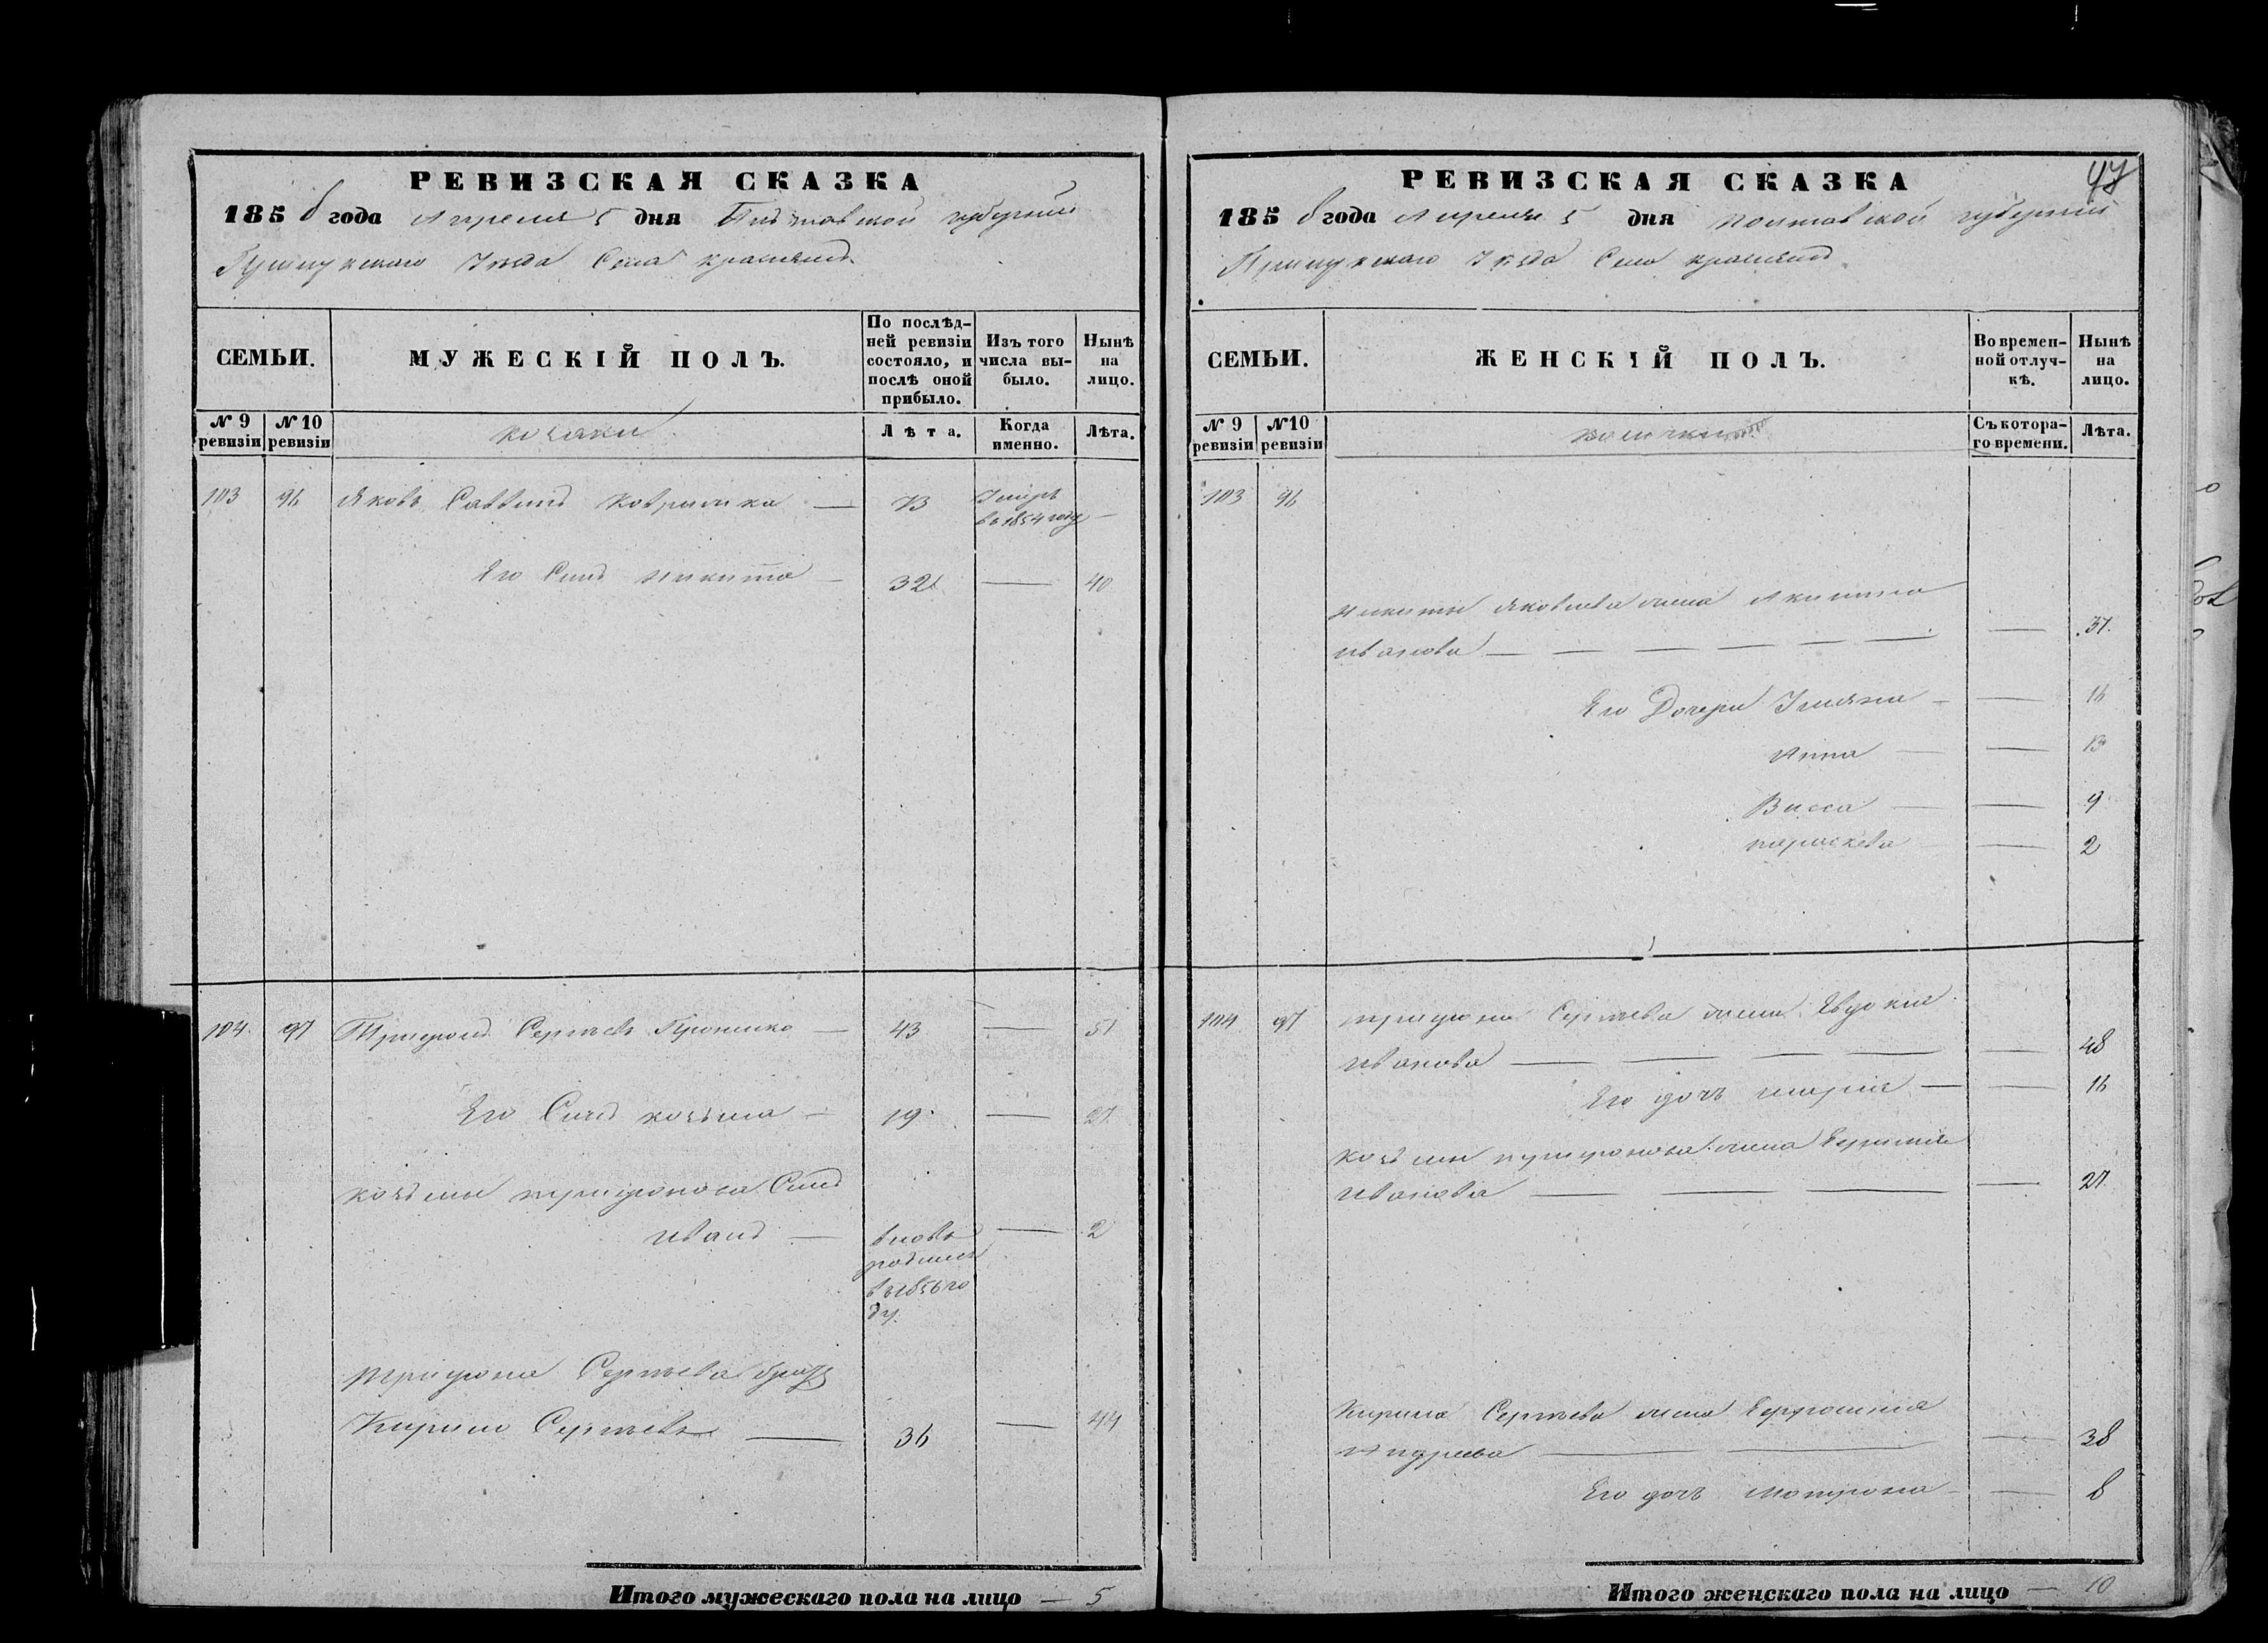 РЕВИЗСКАЯ СКАЗКА
1858 года Апреля 5 дня Полтавской губернии
Прилукскаго Уезда Села
СЕМЬИ.
МУЖЕСКІЙ ПОЛЪ.
По послѣд-
ней ревизіи
состояло, и
послѣ оной
прибыло.
Изъ того
числа вы-
было.
Нынѣ
на
лицо.
№ 9
ревизіи
№ 10
ревизіи
козаки
Лѣта.
Когда
именно.
Лѣта.
103 96 Яковъ Саввинъ — 73 Умеръ
въ 1854 году —
Его Сынъ Никита — 32 — 40
104. 97 Трифонъ Сергѣевъ — 43 — 51
Его Сынъ козьма — 19. — 27.
козьмы трифонова Сынъ
иванъ — вновь — 2
родился
въ 1856 го
ду.
трифона Сергѣева братъ
Кирило Сергѣевъ — 36 — 44
Итого мужескаго пола на лицо — 5
РЕВИЗСКАЯ СКАЗКА
47
1858 года Апреля 5 дня Полтавской губернии
Прилукскаго Уезда Села
СЕМЬИ.
ЖЕНСКІЙ ПОЛЪ.
Во времен-
ной отлуч-
кѣ.
Нынѣ
на
лицо.
№ 9
ревизіи
№10
ревизіи
Съ котора-
го времени.
Лѣта.
103 96
Никиты Яковлева жена Акилина
иванова — — — — — — — 37.
Его Дочери Ульяна — — 16
Анна — — 13
Васса — — 9
параскева — 2
104 97 трифона Сергѣева жена Евдокия
иванова — — — — — 48
Его дочь мария — — 16
козьмы трифонова жена Ефимия
иванова — — — — 27
Кирила Сергѣева жена Ефросиния
Андреева — — — 38
Его дочь мотрона — — 8
Итого женскаго пола на лицо — 10